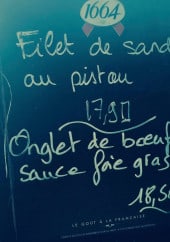 1664
Filet de sand
au pistou
17,90
Onglet de boeuf
sauce foie gras
18,5
LE GOÛT À LA FRANÇAISE